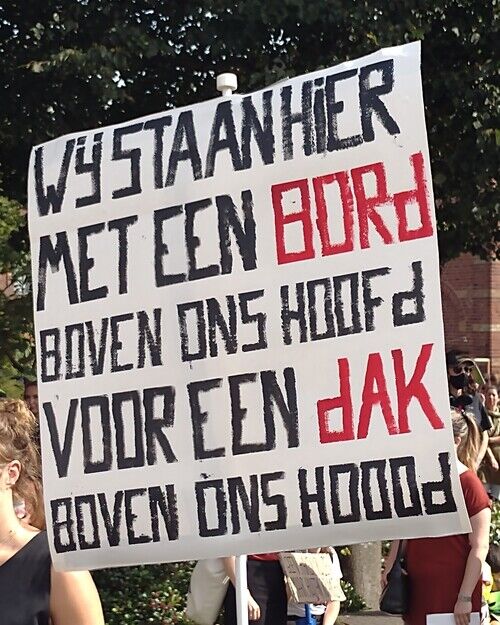 WIJ STAAN HIER
MET EEN BORd
BOVEN ONS HOOFd
VOOR EEN dAK
BOVEN ONS HOOOd